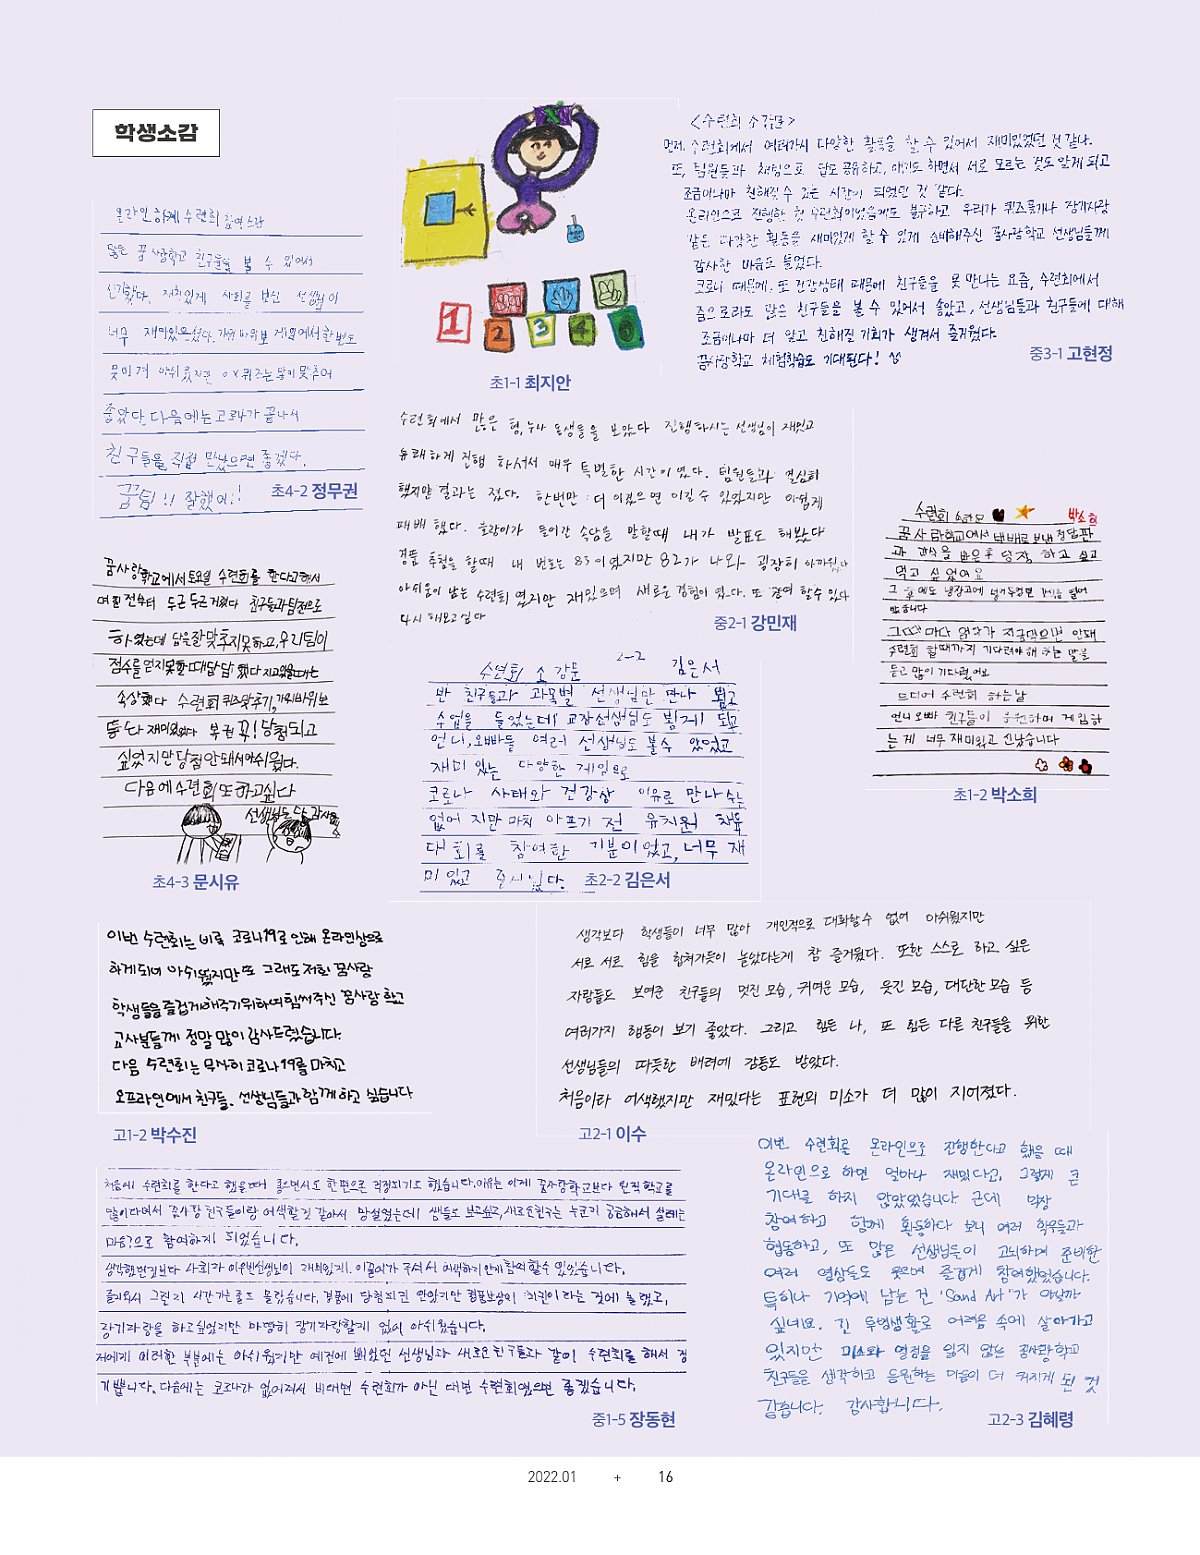 학생소감
온라인 하계 수련회 참여 소감
많은 꿈사랑학교 친구들을 볼 수 있어서
신기했다. 재치있게 사회를 보신 선생님이
너무 재미있으셨다. 가위바위보 게임에서 한번도
못이겨 아쉬웠지만 OX퀴즈는 많이 맞추어
좋았다. 다음에는 코로나가 끝나서
친구들을 직접 만났으면 좋겠다.
꿈팀!! 잘했어!!
초4-2 정무권
1
2
3
4
초1-1 최지안
<수련회 소감문>
먼저, 수련회에서 여러가지 다양한 활동을 할 수 있어서 재미있었던 것 같다.
또, 팀원들과 채팅으로 답도 공유하고, 얘기도 하면서 서로 모르는 것도 알게 되고
조금이나마 친해질 수 있는 시간이 되었던 것 같다.
온라인으로 진행한 첫 수련회이었음에도 불구하고 우리가 퀴즈풀기나 장기자랑
같은 다양한 활동을 재미있게 할 수 있게 준비해주신 꿈사랑학교 선생님들께
감사한 마음도 들었다.
코로나 때문에, 또 건강상태 때문에 친구들을 못 만나는 요즘, 수련회에서
줌으로라도 많은 친구들을 볼 수 있어서 좋았고, 선생님들과 친구들에 대해
조금이나마 더 알고 친해질 기회가 생겨서 즐거웠다.
꿈사랑학교 체험학습도 기대된다!
중3-1 고현정
수련회에서 많은 형, 누나 동생들을 보았다 진행하시는 선생님이 재밌고
유쾌하게 진행 하셔서 매우 특별한 시간이였다. 팀원들과 열심히
했지만 결과는 졌다. 한번만 더 이겼으면 이길 수 있었지만 아쉽게
패배 했다. 호랑이가 들어간 속담을 말할때 내가 발표도 해봤다
경품 추첨을 할때 내 번호는 83이였지만 82가 나와 굉장히 아까웠다
아쉬움이 남는 수련회 였지만 재밌으며 새로운 경험이 였다. 또 참여 할수 있다
다시 해보고싶다
중2-1 강민재
꿈사랑학교에서 토요일 수련회를 한다고해서
며칠 전부터 두근두근거렸다 친구들과 팀전으로
하였는데 답을 잘 맞추지 못하고, 우리팀이
점수를 얻지못할때 답답했다 지고있을때는
속상했다 수련회 퀴즈맞추기, 가위바위보
등 다 재미있었다 꼭! 당첨되고
싶었지만 당첨 안돼서 아쉬웠다.
다음에 수련회 또 하고싶다
선생님들 다 감사
초4-3 문시유
수련회 소감문 2-2 김은서
반 친구들과 과목별 선생님만 만나 뵙고
수업을 들었는데 교장선생님도 뵙게 되고
언니, 오빠들 여러 선생님도 볼수 있었고
재미 있는 다양한 게임으로
코로나 사태와 건강상 이유로 만나 수는
없어 지만 마치 아프기 전 유치원 체육
대회를 참여한 기분이었고, 너무 재
미 있고 즐거웠다.
초2-2 김은서
수련회 소감문 박소희
꿈사랑학교에서 택배로 보낸 정답판
과 간식을 받은 후 당장 하고 싶고
먹고 싶었어요
그 후에도 냉장고에 넣어두었던 간식을 열어
봤습니다
그때마다 엄마가 지금먹으면 안돼
수련회 할때까지 기다려야해 하는 말을
듣고 많이 기다렸어요
드디어 수련회 하는날
언니오빠 친구들이 응원하며 게임하
는게 너무 재미있고 신났습니다
초1-2 박소희
이번 수련회는 비록 코로나19로 인해 온라인상으로
하게되어 아쉬웠지만 또 그래도 저희 꿈사랑
학생들을 즐겁게해주기위하여 힘써주신 꿈사랑 학교
교사분들께 정말 많이 감사드렸습니다.
다음 수련회는 무사히 코로나19를 마치고
오프라인에서 친구들, 선생님들과 함께 하고 싶습니다
고1-2 박수진
생각보다 학생들이 너무 많아 개인적으로 대화할수 없어 아쉬웠지만
서로 서로 힘을 합쳐가듯이 놀았다는게 참 즐거웠다. 또한 스스로 하고 싶은
자랑들도 보여준 친구들의 멋진 모습, 귀여운 모습, 웃긴 모습, 대단한 모습 등
여러가지 행동이 보기 좋았다. 그리고 힘든 나, 또 힘든 다른 친구들을 위한
선생님들의 따듯한 배려에 감동도 받았다.
처음이라 어색했지만 재밌다는 표현의 미소가 더 많이 지어졌다.
고2-1 이수
처음에 수련회를 한다고 했을때 좋으면서도 한편으론 걱정되기도 했습니다. 이유는 아직 꿈사랑학교보다 원적학교를
많이다녀서 꿈사랑 친구들이랑 어색할것 같아서 망설였는데 쌤들도 보고싶고, 새로운친구는 누군지 궁금해서 설레는
마음으로 참여하게 되었습니다.
생각했던것보다 사회자 이우빈선생님이 재미있게 이끌어가 주셔서 어색하지않게 참여할수 있었습니다.
즐거워서 그런지 시간가는줄도 몰랐습니다. 경품에 당첨되진 않았지만 경품보상이 치킨이라는 것에 놀랬고,
장기자랑을 하고싶었지만 마땅히 장기자랑할게 없어 아쉬웠습니다.
저에게 이러한 부분에는 아쉬웠지만 예전에 뵈었던 선생님과 새로운친구들과 같이 수련회를 해서 정
기뻤습니다. 다음에는 코로나가 없어져서 비대면 수련회가 아닌 대면 수련회였으면 좋겠습니다.
중1-5 장동현
이번 수련회를 온라인으로 진행한다고 했을 때
온라인으로 하면 얼마나 재밌다고, 그렇게 큰
기대를 하지 않았었습니다 근데 막상
참여하고 함께 활동하다 보니 여러 학우들과
협동하고, 또 많은 선생님들이 고뇌하며 준비한
여러 영상들도 웃으며 즐겁게 참여했었습니다.
특히나 기억에 남는 건 'Sand Art'가 아닐까
싶네요. 긴 투병생활로 어려움 속에 살아가고
있지만 미소와 열정을 잃지 않는 꿈사랑학교
친구들을 생각하고 응원하는 마음이 더 커지게 된 것
같습니다. 감사합니다.
고2-3 김혜령
2022.01 + 16